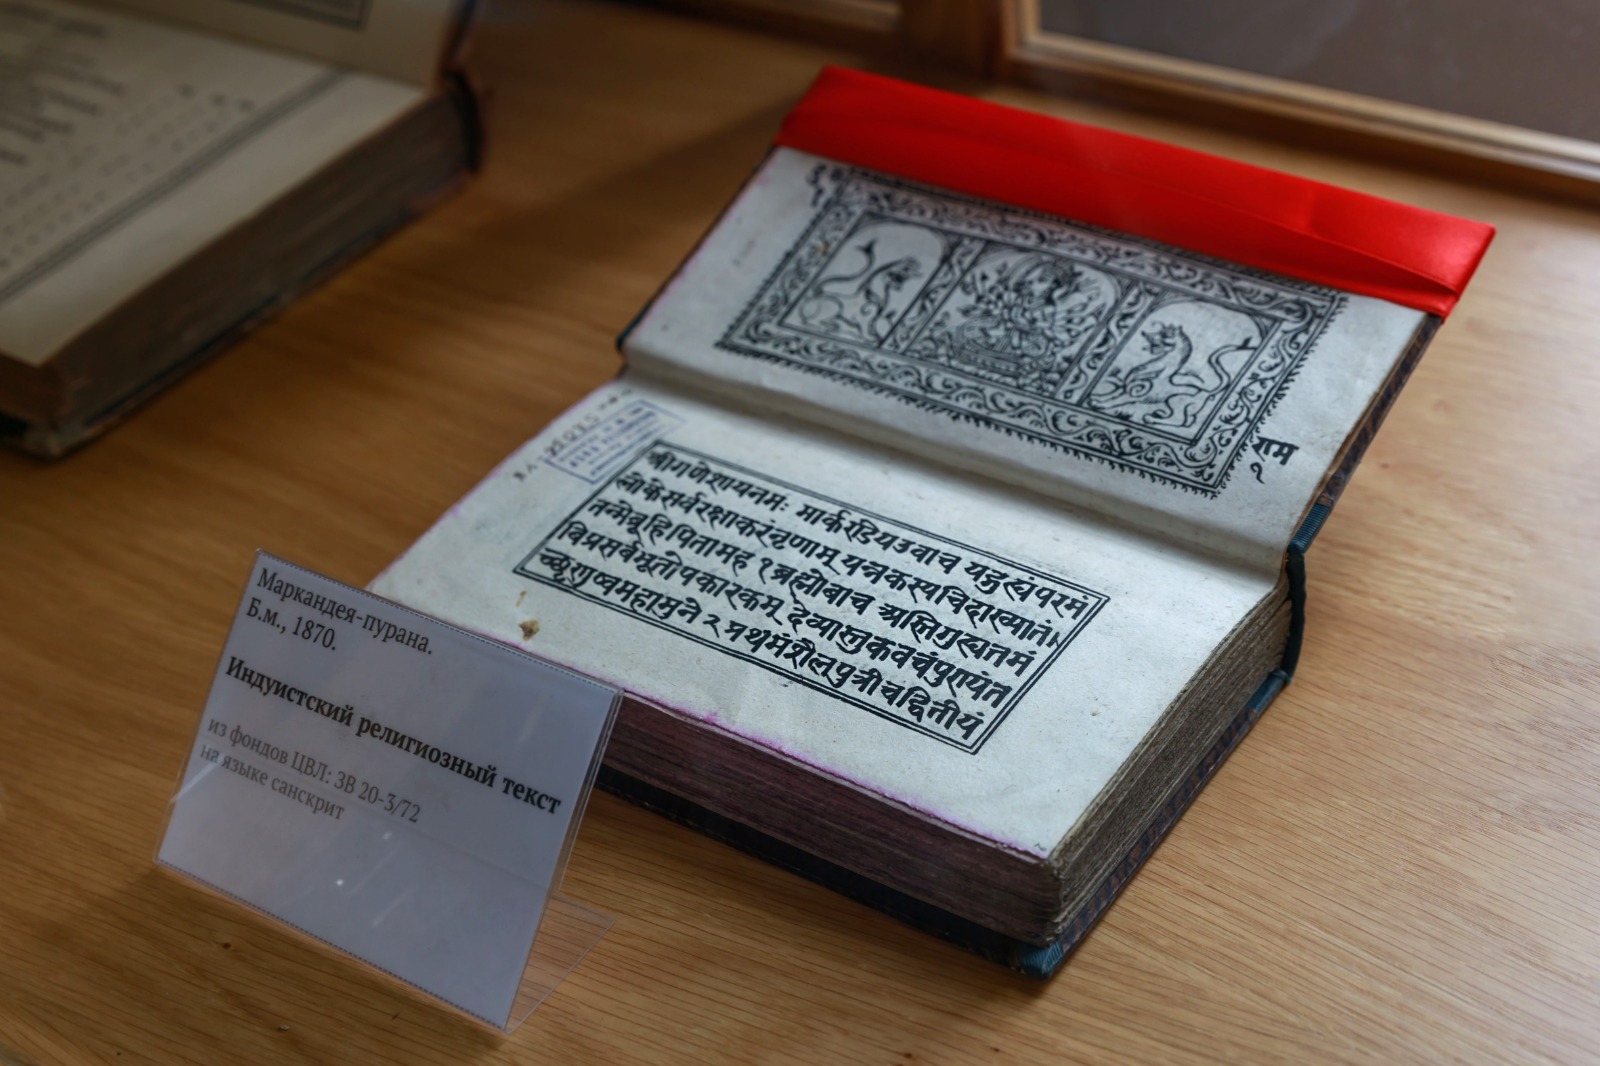 राम
१
श्रीगणेशायनमः मार्कण्डेयउवाच यद्गुह्यंपरमं
लोकेसर्वरक्षाकरंनृणाम् यन्नकस्यचिदाख्यातं
तन्मेब्रूहिपितामह १ ब्रह्मोवाच अस्तिगुह्यतमं
विप्रसर्वभूतोपकारकम् देव्यास्तुकवचंपुण्यंत
च्छृणुष्वमहामुने २ प्रथमंशैलपुत्रीचद्वितीयं
Маркандея-пурана.
Б.м., 1870.
Индуистский религиозный текст
из фондов ЦВЛ: ЗВ 20-3/72
на языке санскрит